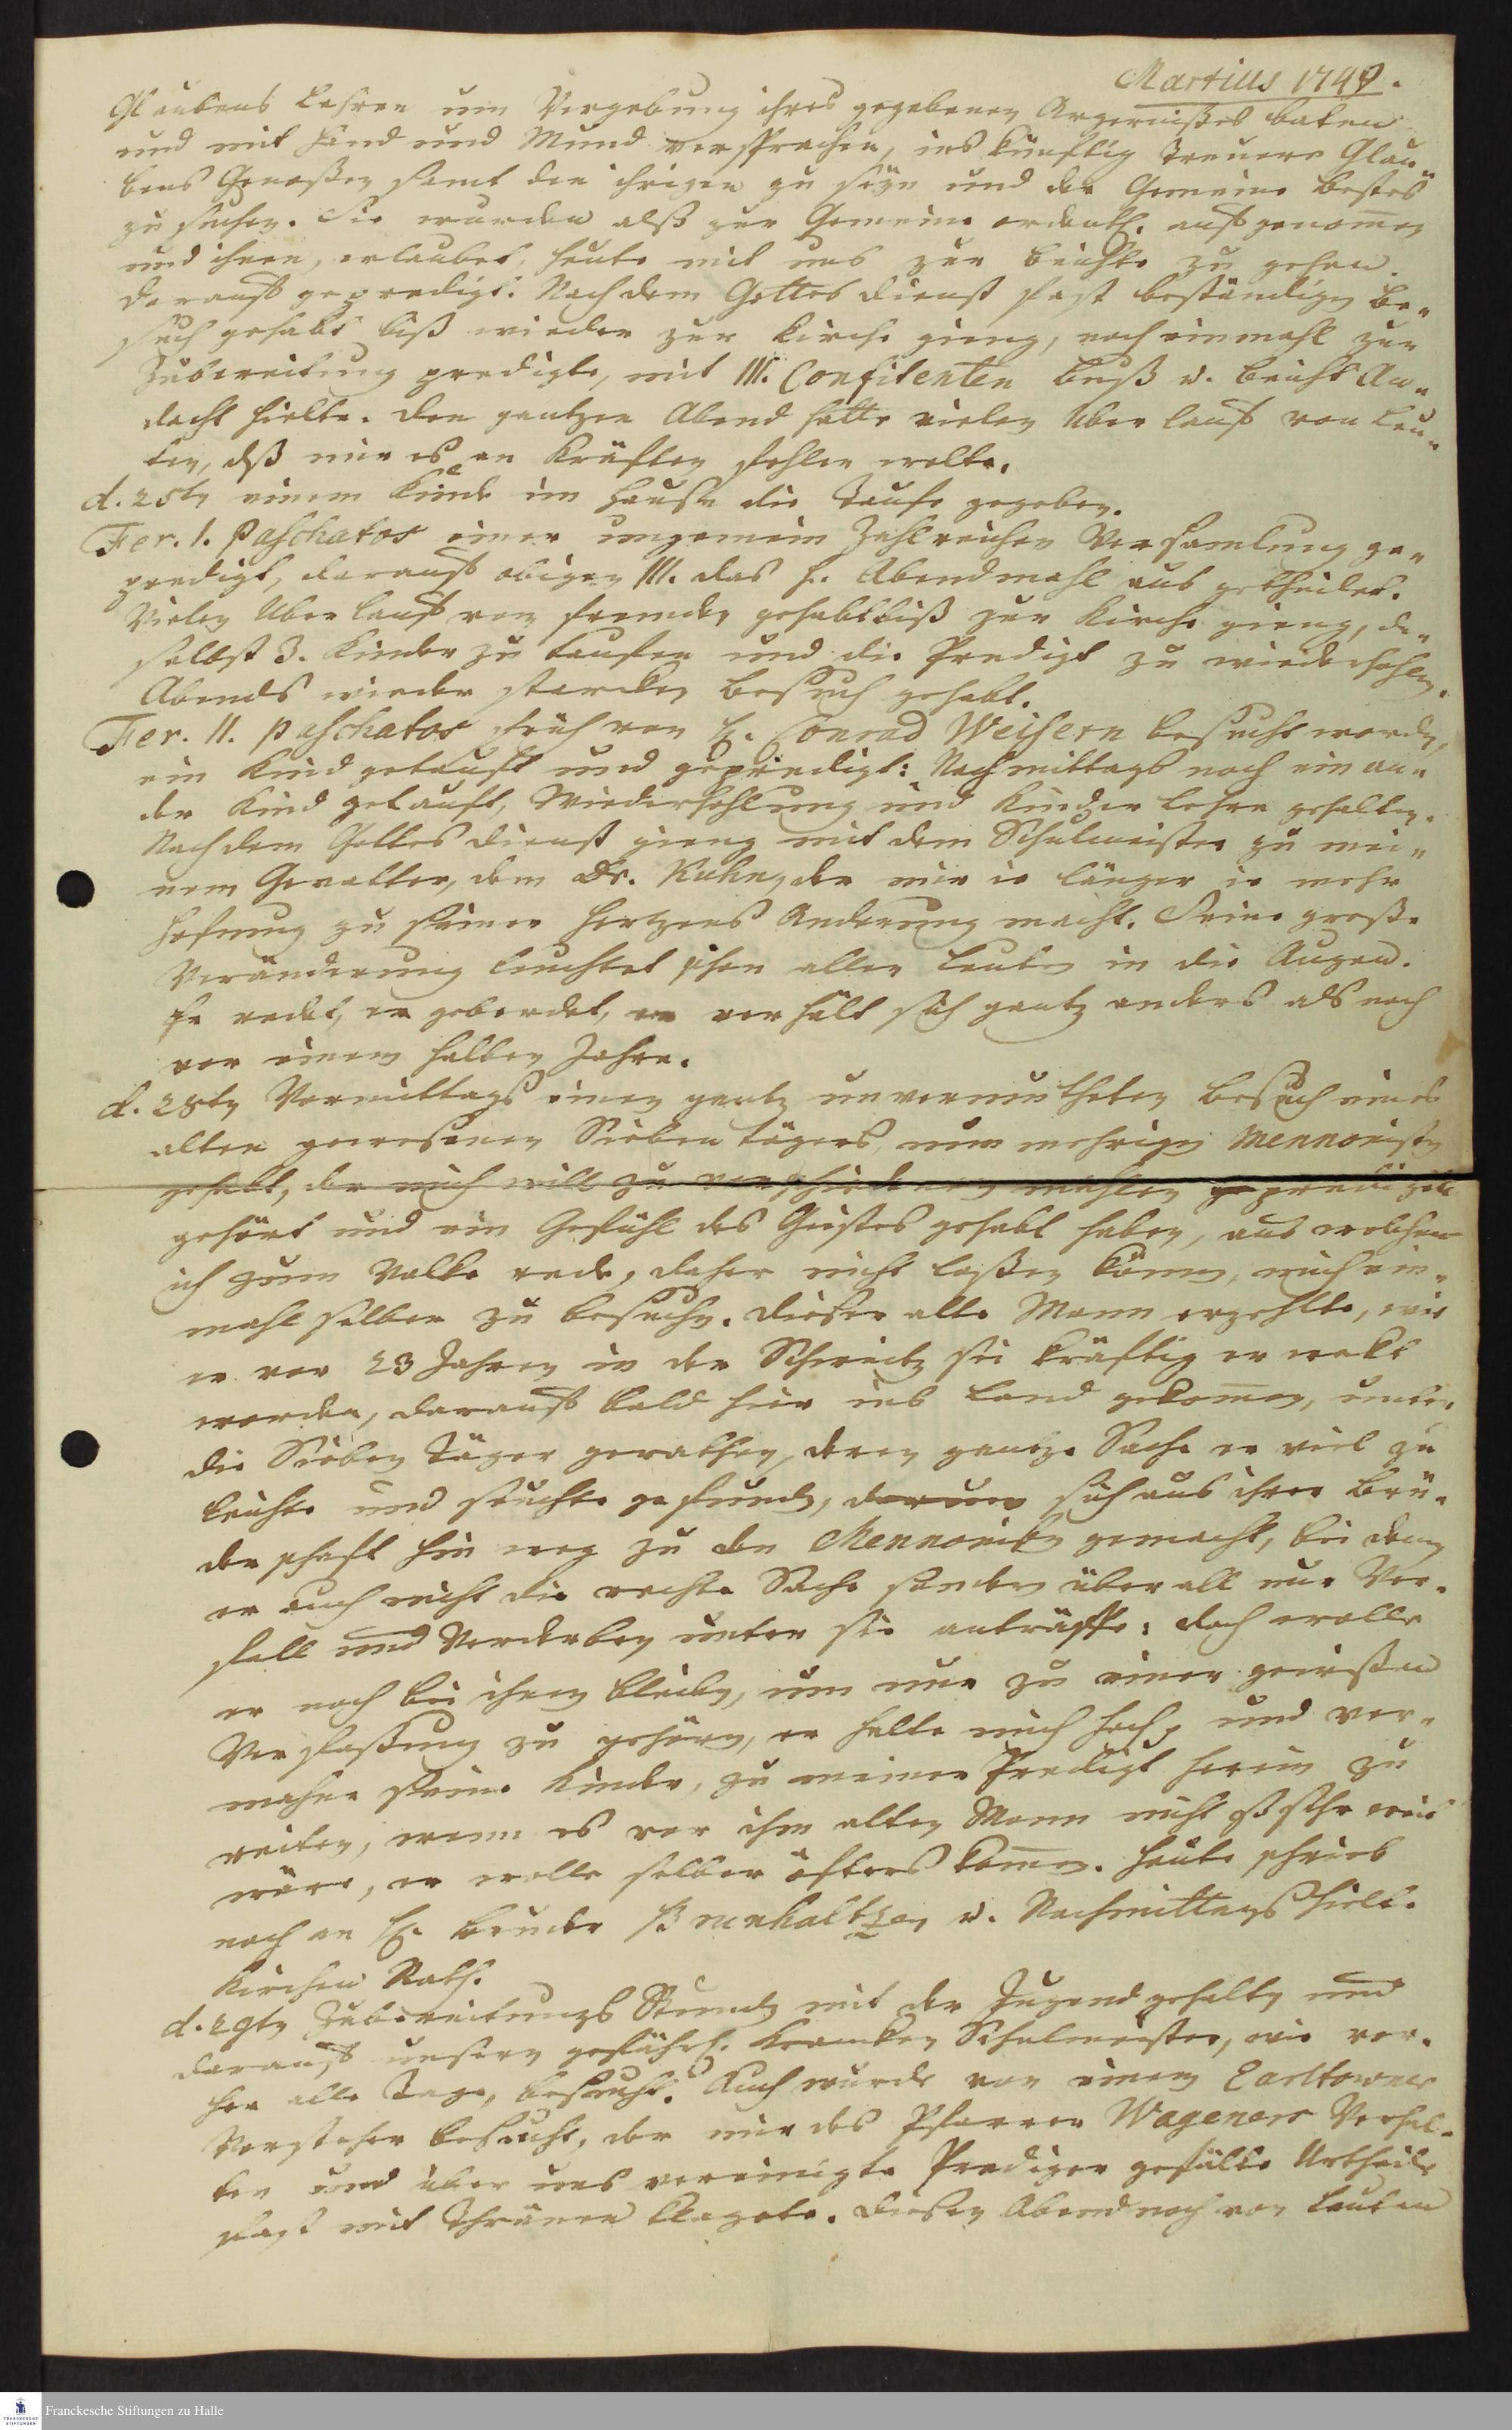 Martius 1749.
Glaubens Lehren um Vergebung ihres gegebenen Ärgernißes baten
und mit Hand und Mund versprachen, ins künftig treuere Glau-
bens Genoßen samt den ihrigen zu seyn und der Gemeine Bestes
zu suchen. Sie wurden alß zur Gemeine ordentl. aufgenomen
und ihnen, erlaubet, heute mit uns zur Beichte zu gehen.
darauf gepredigt. Nach dem Gottes dienst fast beständigen Be-
such gehabt biß wieder zur Kirche gieng, noch einmahl zur
Zubereitung predigte, mit 111. Confitenten Buß u. Beicht An-
dacht hielte. Den gantzen Abend hatte vielen Uberlauf von Leu-
ten, dß mir es an Kräften fehlen wolte.
d. 25tn einem Kinde im Hause die Taufe gegeben.
Fer. I. Paschatos einer ungemein Zahlreichen Versamlung ge-
predigt, darauf obigen 111. das H. Abendmahl aus getheilet.
Vielen Uberlauf von fremden gehabt biß zur Kirche gieng, da-
selbst 3. Kinder zu taufen und die Predigt zu wiederhohlen.
Abends wieder starcken Besuch gehabt.
Fer. II. Paschatos früh von H. Conrad Weisern besucht worden,
ein Kind getauft und gepredigt: Nachmittags noch ein an-
der Kind getauft, Wiederhohlung und Kinder lehre gehalten.
Nach dem Gottes dienst gieng mit dem Schulmeister zu mei-
nem Gevatter, dem Dr. Kuhn, der mir ie länger ie mehr
Hofnung zu seiner Hertzens Änderung macht. Seine große
Veränderung leuchtet schon allen Leuten in die Augen.
Er redet, er geberdet, er verhält sich gantz anders als noch
vor einem halben Jahre.
d. 28tn Vormittags einen gantz unvermutheten Besuch eines
alten gewesenen Siebentägers, nun mehrigen Mennonisten
gehabt, der mich will zu verschiedenen mahlen predigen
gehört und ein Gefühl des Geistes gehabt haben, aus welchem
ich zum Volke rede, daher nicht laßen können, mich ein-
mahl selber zu besuchen. Dieser alte Mann erzehlte, wie
er vor 23 Jahren in der Schweitz sei kräftig erwekt
worden, darauf bald hier ins Land gekomen, unter
die Sieben Täger gerathen, deren gantze Sache er viel zu
leichte und seuchte gefunden, darum sich aus ihrer Brü-
derschaft hin weg zu den Mennoniten gemacht, bei denen
er auch nicht die rechte Sache sondern überall nur Ver-
fall und Verderben unter sie anträffe: doch wolle
er noch bei ihnen bleiben, um nur zu einer gewißen
Verfaßung zu gehören, er halte mich hoch, und ver-
mahne seine Kinder, zu meiner Predigt herein zu
reiten, wenn es vor ihm alten Mann nicht so sehr weit
wäre, er wolle selber öfters komen. Heute schrieb
noch an H. Bruder Brunholtzen u. Nachmittags hielt
Kirchen Rath.
d. 29tn Zubereitungs Stunden mit der Jugend gehalten und
darauf unsern gefährl. krancken Schulmeister, wie vor-
her alle Tage, besucht. Auch wurde von einem Earltowner
Vorsteher besucht, der mir des Pfarrer Wageners Verhal-
ten und über uns vereinigte Prediger gefälte Urtheile
fast mit Thränen klagete. Diesen Abend noch von Leuten
Franckesche Stiftungen zu Halle